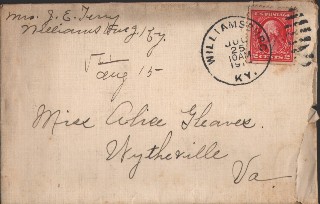 Mrs. J. E. Terry
Williamsburg Ky.
aug 15
WILLIAMSBURG
25
10 AM
19
KY.
2 CENTS 2
Miss Alice Gleaves.
Wytheville
Va